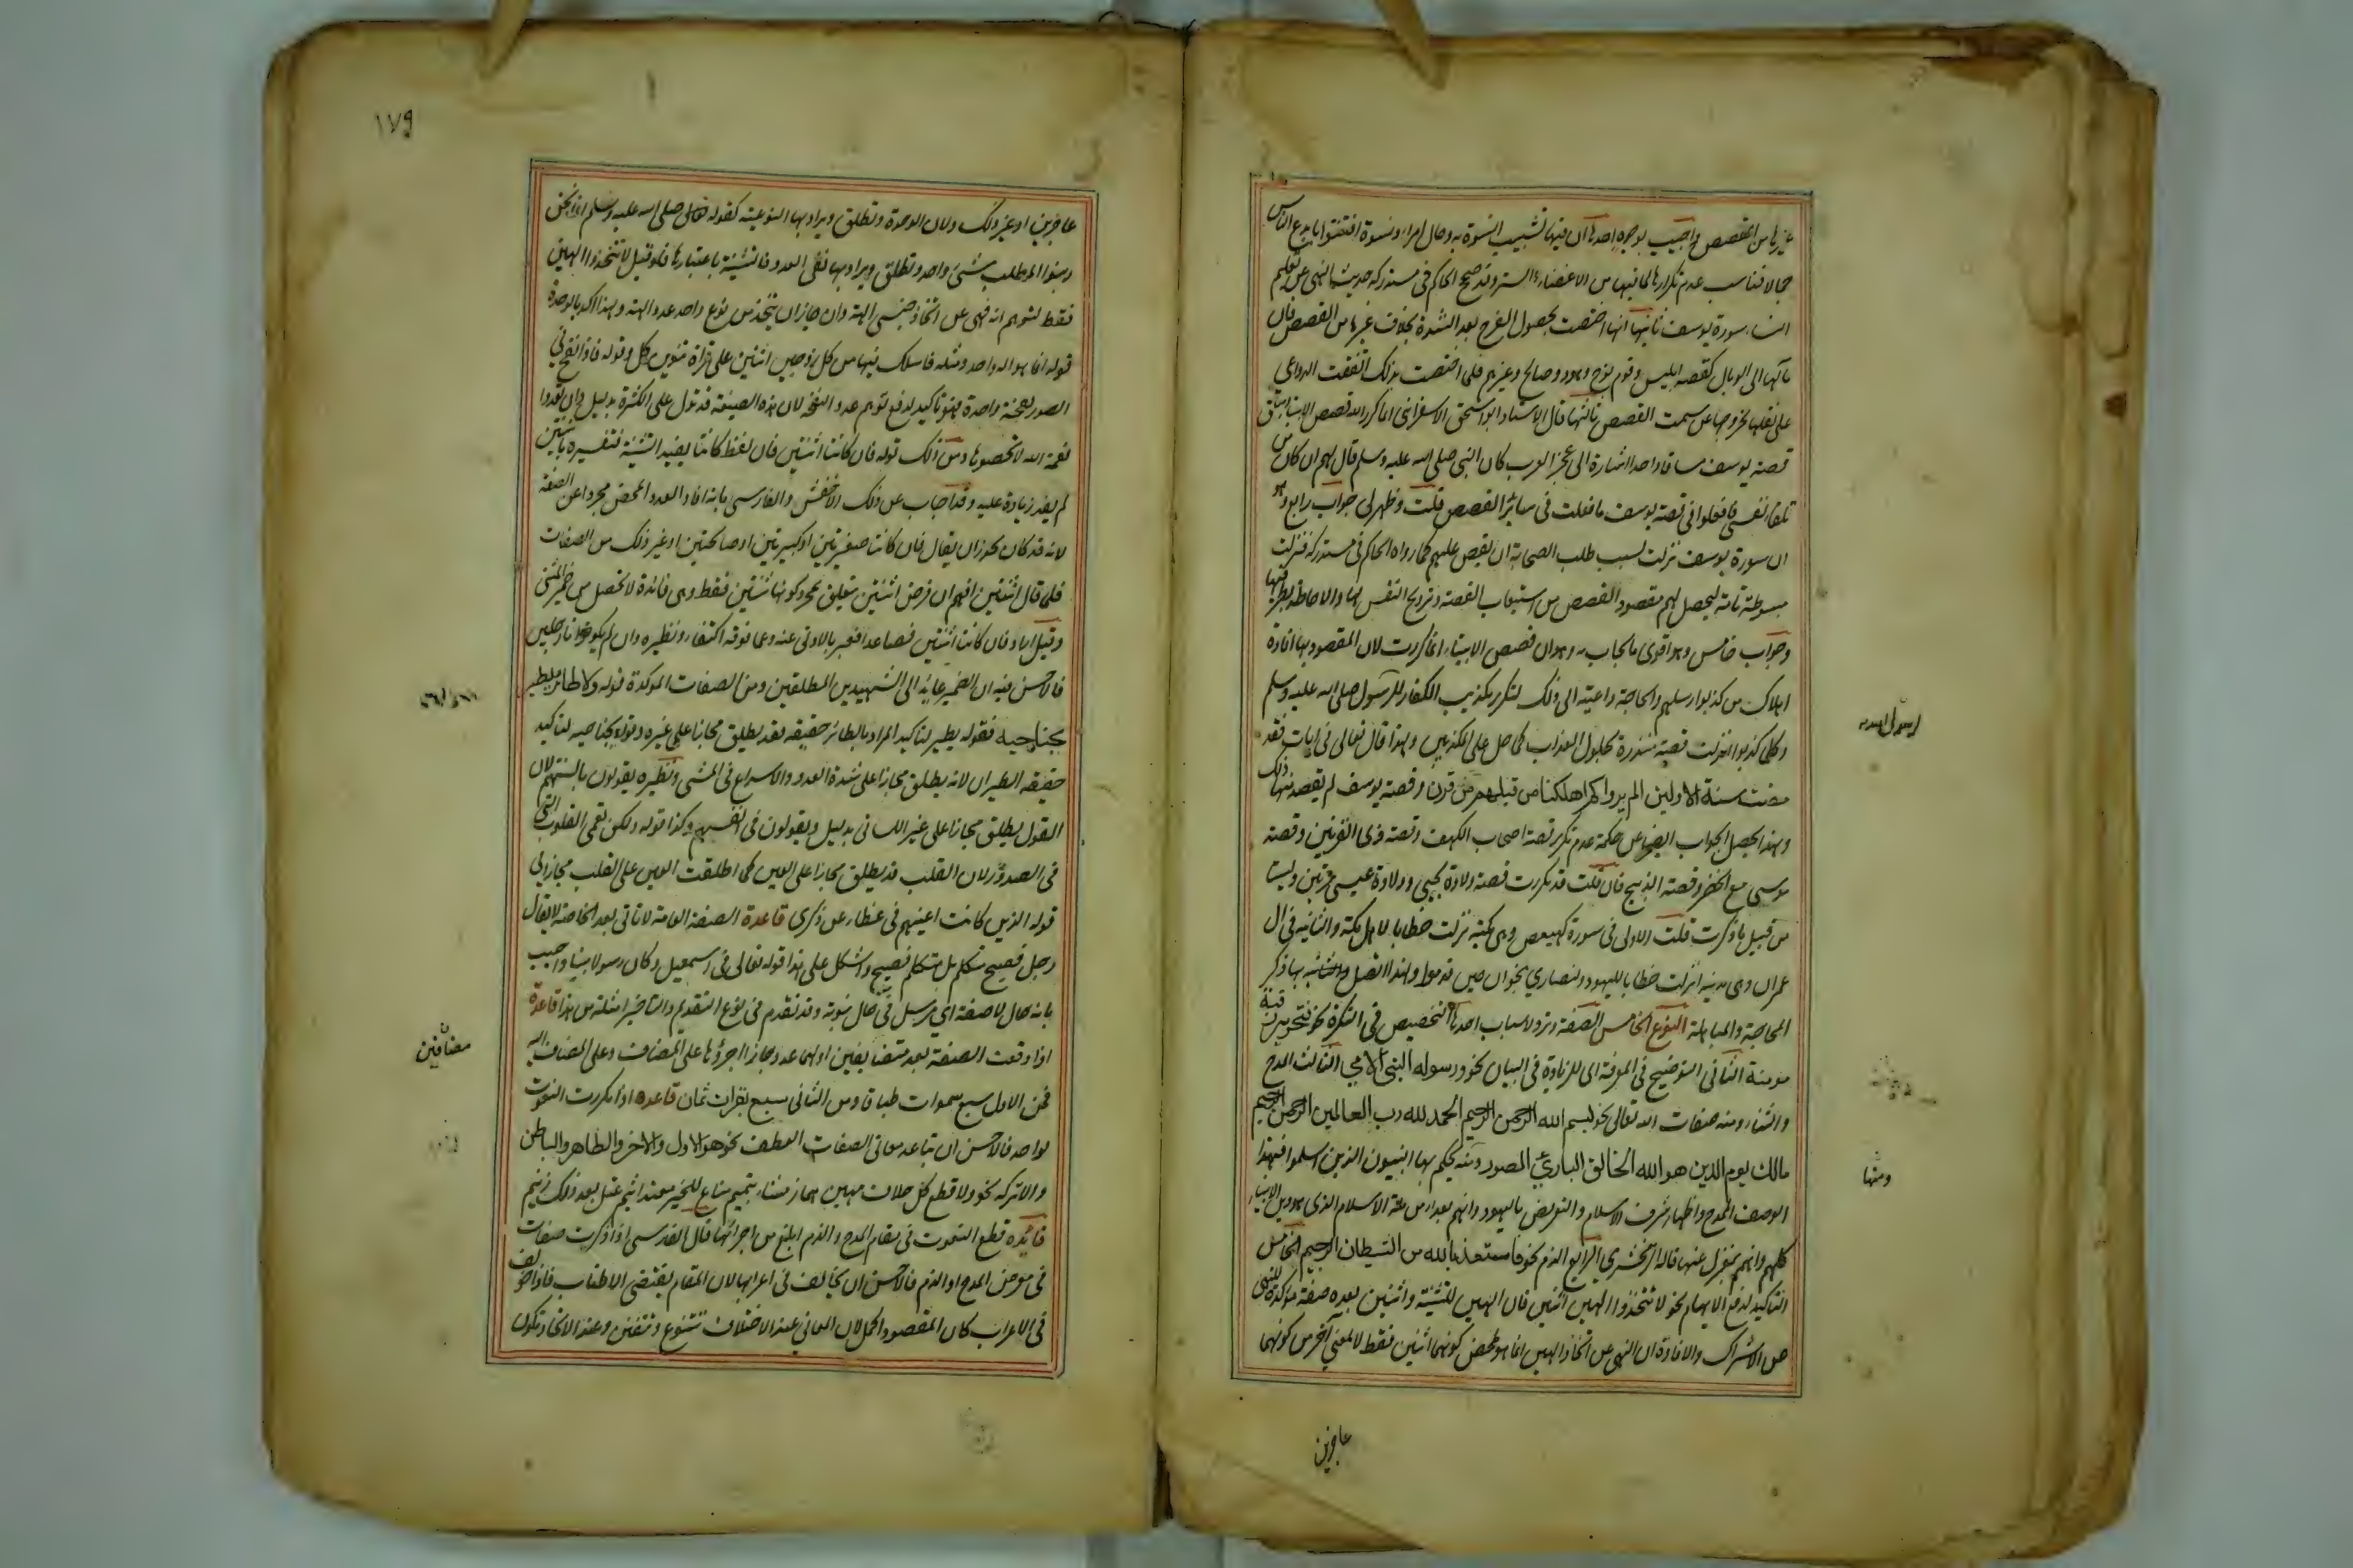 غيرها من القصص واجيب بوجوه احدها ان فيها تشبيب النسوة به وحال امراة ونسوة افتتنوا بابدع الناس
جمالا فناسب عدم تكرارها لما فيها من الاغضاء والستر وقد صحح الحاكم في مستدركه حديث النهي عن تعليم
النساء سورة يوسف ثانيها انها اختصت بحصول الفرج بعد الشدة بخلاف غيرها من القصص فان
مآلها الى الوبال كقصة ابليس وقوم نوح وهود وصالح وغيرهم فلما اختصت بذلك اتفقت الدواعي
على نقلها لخروجها عن سمت القصص ثالثها قال الاستاد ابو اسحق الاسفرائني انما كرر الله قصص الانبيا وساق
قصة يوسف مساقا واحدا اشارة الى عجز العرب كان النبي صلى الله عليه وسلم قال لهم ان كان من
تلقا نفسي فافعلوا في قصة يوسف ما فعلت في سائر القصص قلت وظهر لي جواب رابع وهو
ان سورة يوسف نزلت بسبب طلب الصحابة ان يقص عليهم كما رواه الحاكم في مستدركه فنزلت
مبسوطة تامة ليحصل لهم مقصود القصص من استيعاب القصة وترويح النفس بها والاحاطة بطرفيها
وجواب خامس وهو اقوى ما يجاب به وهو ان قصص الانبياء انما كررت لان المقصود بها افادة
اهلاك من كذبوا رسلهم والحاجة داعية الى ذلك لتكرر تكذيب الكفار للرسول صلى الله عليه وسلم
وكلما كذبوا انزلت قصة منذرة بحلول العذاب كما حل على المكذبين ولهذا قال تعالى في ايات فقد
مضت سنة الاولين الم يروا كم اهلكنا من قبلهم من قرن وقصة يوسف لم يقصد منها ذلك
وبهذا يحصل الجواب ايضا عن حكمة عدم تكرير قصة اصحاب الكهف وقصة ذي القرنين وقصة
موسى مع الخضر وقصة الذبيح فان قلت قد تكررت قصة ولادة يحيى وولادة عيسى مرتين وليست
من قبيل ما ذكرت قلت الاولى في سورة كهيعص وهي مكية نزلت خطابا لاهل مكة والثانية في ال
عمران وهي مدنية انزلت خطابا لليهود ولنصاري نجران حين قدموا ولهذا اتصل بها ذكر
المحاجة والمباهلة النوع الخامس الصفة وترد لاسباب احدها التخصيص في النكرة نحو فتحرير رقبة
مومنة الثاني التوضيح في المعرفة اي للزيادة في البيان نحو ورسوله النبي الامي الثالث المدح
والثناء ومنه صفات الله تعالى نحو بسم الله الرحمن الرحيم الحمد لله رب العالمين الرحمن الرحيم
مالك يوم الدين هو الله الخالق الباري المصور ومنه يحكم بها النبيون الذين اسلموا فهذا
الوصف للمدح واظهار شرف الاسلام والتعريض باليهود وانهم بعداء من ملة الاسلام الذي هو دين الانبياء
كلهم وانهم بمعزل عنها قاله الزمخشري الرابع الذم نحو فاستعذ بالله من الشيطان الرجيم الخامس
التاكيد لرفع الايهام نحو لا تتخذوا الهين اثنين فان الهين للتثنية واثنين بعده صفة مؤكدة للنهي
عن الاشراك والافادة ان النهي عن اتخاذ الهين انما هو لمحض كونهما اثنين فقط لا لمعني آخر من كونهما
عاجزين
ومنها
١٧٩
عاجزين او غير ذلك ولان الوحدة وتطلق ويراد بها النوعية كقوله صلى الله عليه وسلم انما نحن
وبنوا المطلب شئ واحد وتطلق ويراد بها نفي العدد فالتثنية باعتبارها فلو قيل لا تتخذوا الهين
فقط لتوهم انه نهى عن اتخاذ جنسي الهة وان جاز ان يتخذ من نوع واحد عدد الهة ولهذا اكد بالوحدة
قوله انما هو اله واحد ومثله فاسلك فيها من كل زوجين اثنين على قراة تنوين كل وقوله فاذا نفخ في
الصور نفخة واحدة فهو تاكيد لرفع توهم عدد النفخة لان هذه الصيغة قد تدل على الكثرة بدليل وان تعدوا
نعمة الله لا تحصوها ومن ذلك قوله فان كانتا اثنتين فان لفظ كانتا يفيد التثنية فتفسيره باثنتين
لم يفد زيادة عليه وقد اجاب عن ذلك الاخفش والفارسي بانه افاد العدد المحض مجردا عن الصفة
لانه قد كان يجوز ان يقال فان كانتا صغيرتين او كبيرتين او صالحتين او غير ذلك من الصفات
فلما قال اثنتين افهم ان فرض اثنتين متعلق بمجرد كونهما ثنتين فقط وهي فائدة لا تحصل من ضمير المثنى
وقيل اراد فان كانتا اثنتين فصاعدا فعبر بالادنى عنه وعما فوقه اكتفاء ونظيره وان لم يكونا رجلين
فالاحسن فيه ان الضمير عائد الى الشهيدين المطلقين ومن الصفات المؤكدة قوله ولا طائر يطير
بجناحيه فقوله يطير لتاكيد المراد بالطائر حقيقة فقد يطلق مجازا على غيره وقوله بجناحيه لتاكيد
حقيقة الطيران لانه يطلق مجازا على شدة العدو والاسراع في المشي ونظيره يقولون بالسنتهم لان
القول يطلق مجازا على غير اللساني بدليل ويقولون في انفسهم وكذا قوله ولكن تعمى القلوب التي
في الصدور لان القلب قد يطلق مجازا على العين كما اطلقت العين على القلب مجازا في
قوله الذين كانت اعينهم في غطاء عن ذكري قاعدة الصفة العامة لا تاتي بعد الخاصة لا يقال
رجل فصيح متكلم بل متكلم فصيح واشكل على هذا قوله تعالى في اسمعيل وكان رسولا نبيا واجيب
بانه حال لا صفة اي مرسل في حال نبوته وقد تقدم في نوع التقديم والتاخير امثلة من هذا قاعدة
اذا وقعت الصفة بعد متضايفين اولهما عدد جاز اجرؤها على المضاف وعلى المضاف اليه
فمن الاول سبع سموات طباقا ومن الثاني سبع بقرات سمان قاعدة اذا تكررت النعوت
لواحد فالاحسن ان تباعد معاني الصفات العطف نحو هو الاول والاخر والظاهر والباطن
والا تركه نحو ولا تطع كل حلاف مهين هماز مشاء بنميم مناع للخير معتد اثيم عتل بعد ذلك زنيم
فائدة قطع النعوت في مقام المدح والذم ابلغ من اجرائها قال الفارسي اذا ذكرت صفات
في معرض المدح او الذم فالاحسن ان يخالف في اعرابها لان المقام يقتضي الاطناب فاذا خولف
في الاعراب كان المقصود اكمل لان المعاني عند الاختلاف تتنوع وتتفنن وعند الاتحاد تكون
مضافين